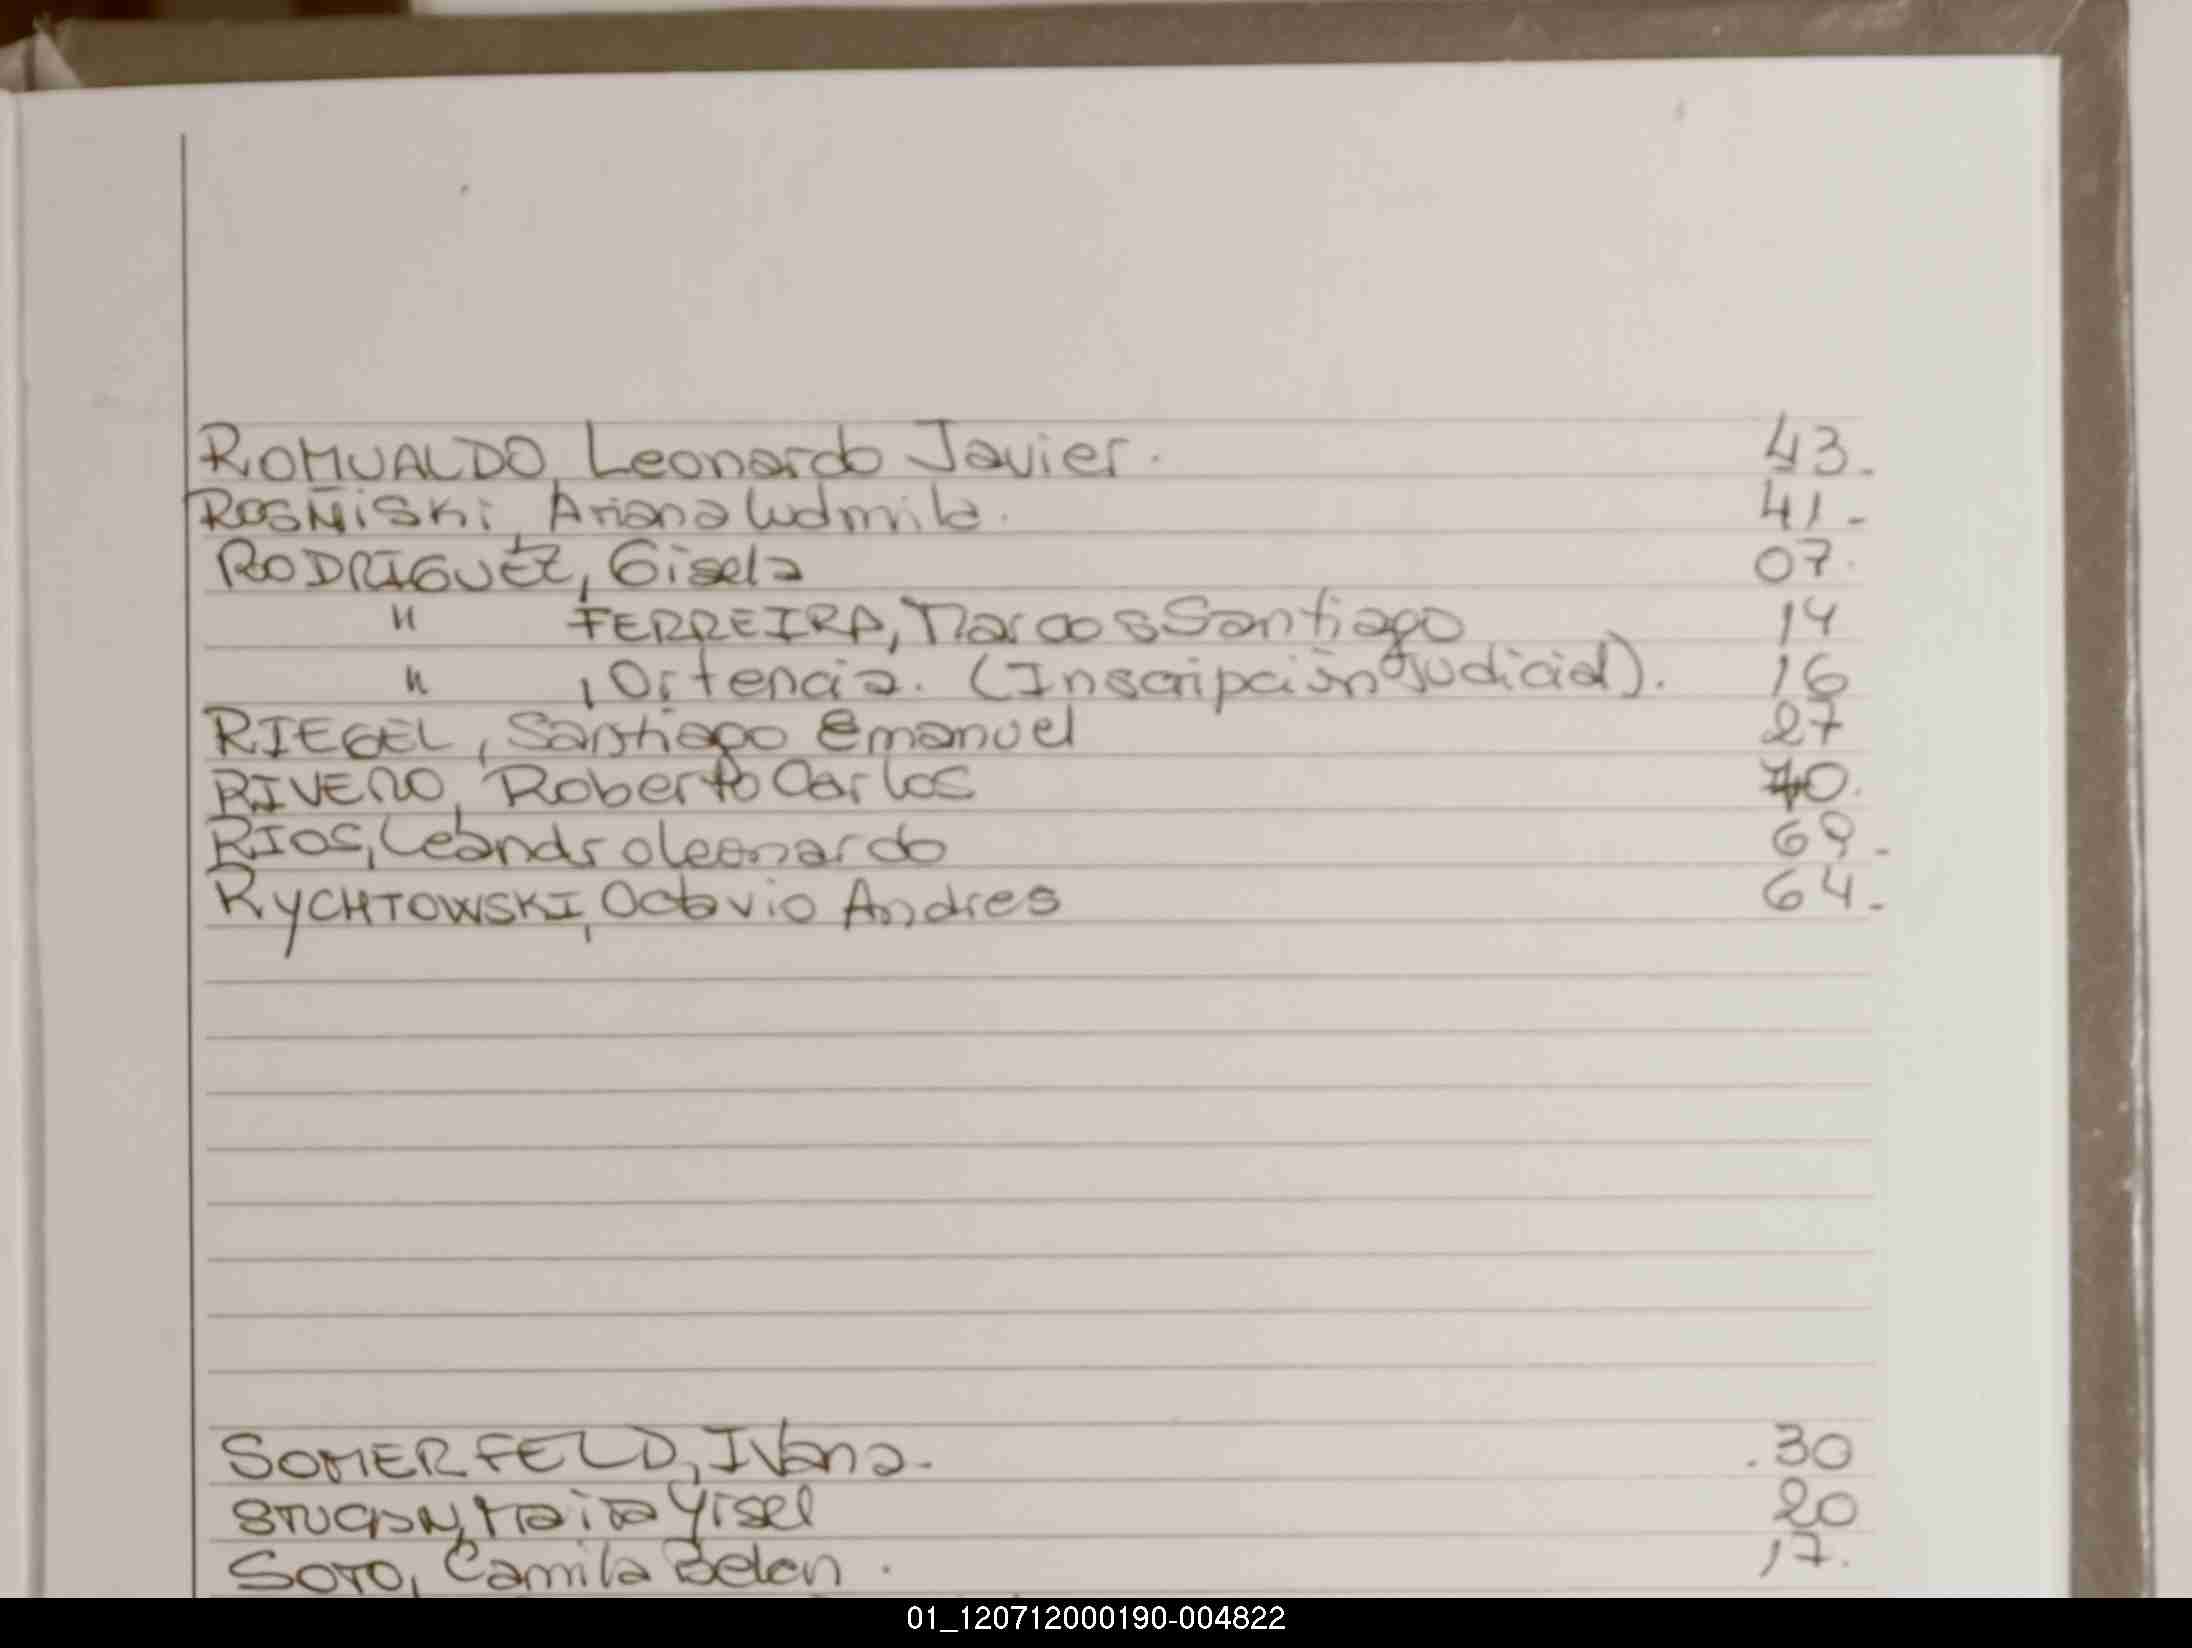 ROMUALDO, Leonardo Javier. 43.
ROSÑiSKi, Ariana Ludmila. 41.-
RODRIGUEZ, Gisela 07.
" FERREIRA, Marcos Santiago 14
" , Ortencia. (Inscripción Judicial). 16
RIEGEL, Santiago Emanuel 27
RIVERO, Roberto Carlos 70.
RIOS, Leandro Leonardo 69.-
RYCHTOWSKI, Octavio Andres 64.-
SOMERFELD, Ivana. .30
Yisel 20
SOTO, Camila Belen. 17.
01_120712000190-004822